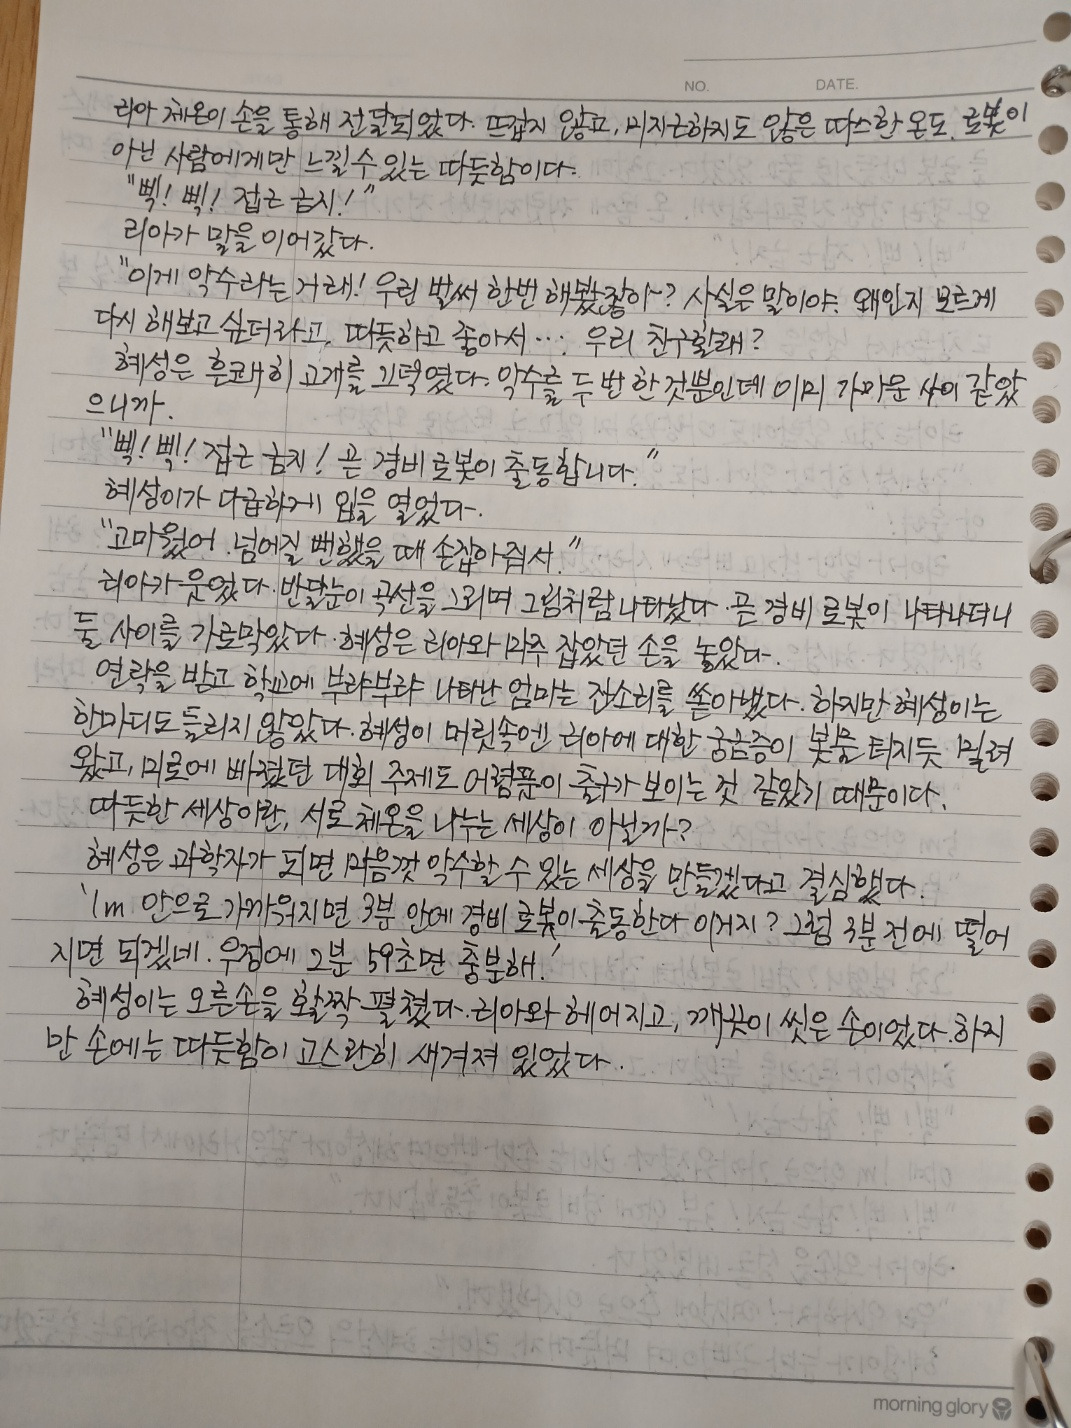 NO. DATE.
리아 체온이 손을 통해 전달되었다. 뜨겁지 않고, 미지근하지도 않은 따스한 온도. 로봇이
아닌 사람에게만 느낄 수 있는 따듯함이다.
"삑! 삑! 접근 금지!"
리아가 말을 이어갔다.
"이게 악수라는 거래! 우린 벌써 한번 해봤잖아? 사실은 말이야. 왜인지 모르게
다시 해보고 싶더라고, 따듯하고 좋아서…. 우리 친구할래?
혜성은 흔쾌히 고개를 끄덕였다. 악수를 두 번 한 것뿐인데 이미 가까운 사이 같았
으니까.
"삑! 삑! 접근 금지! 곧 경비 로봇이 출동합니다."
혜성이가 다급하게 입을 열었다.
"고마웠어. 넘어질 뻔했을 때 손잡아줘서."
리아가 웃었다. 반달눈이 곡선을 그리며 그림처럼 나타났다. 곧 경비 로봇이 나타나더니
둘 사이를 가로막았다. 혜성은 리아와 마주 잡았던 손을 놓았다.
연락을 받고 학교에 부랴부랴 나타난 엄마는 잔소리를 쏟아냈다. 하지만 혜성이는
한마디도 들리지 않았다. 혜성이 머릿속엔 리아에 대한 궁금증이 봇물 터지듯 밀려
왔고, 미로에 빠졌던 대회 주제도 어렴풋이 출구가 보이는 것 같았기 때문이다.
따듯한 세상이란, 서로 체온을 나누는 세상이 아닐까?
혜성은 과학자가 되면 마음껏 악수할 수 있는 세상을 만들겠다고 결심했다.
'1m 안으로 가까워지면 3분 안에 경비 로봇이 출동한다 이거지? 그럼 3분 전에 떨어
지면 되겠네. 우정에 2분 59초면 충분해.'
혜성이는 오른손을 활짝 펼쳤다. 리아와 헤어지고, 깨끗이 씻은 손이었다. 하지
만 손에는 따듯함이 고스란히 새겨져 있었다.
morning glory